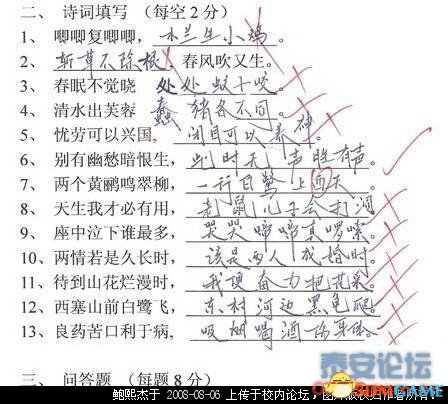 二、 诗词填写 （每空2分）
1、 唧唧复唧唧，木兰生小鸡。
2、 斩草不除根，春风吹又生。
3、 春眠不觉晓 处处蚊子咬。
4、 清水出芙蓉 蠢猪各不同。
5、 忧劳可以兴国，闭目可以养神。
6、 别有幽愁暗恨生，此时无声胜有声。
7、 两个黄鹂鸣翠柳，一行白鹭上西天
8、 天生我才必有用，老鼠儿子会打洞
9、 座中泣下谁最多，哭哭啼啼真啰嗦。
10、两情若是久长时，该是两人成婚时
11、待到山花烂漫时，我便奋力把花采。
12、西塞山前白鹭飞，东村河边黑龟爬。
13、良药苦口利于病，吸烟喝酒伤身体。
三、 问答题 （每题8分）
泰安论坛
鲍熙杰于 2008-08-06 上传于校内论坛，